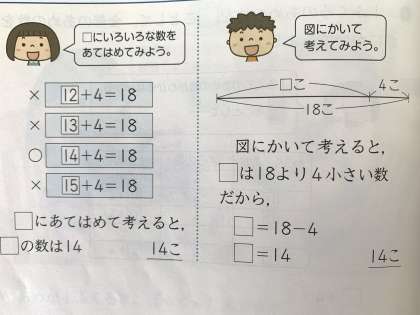 □にいろいろな数を
あてはめてみよう。
× 12+4=18
× 13+4=18
○ 14+4=18
× 15+4=18
□にあてはめて考えると,
□の数は14
14こ
図にかいて
考えてみよう。
□こ 4こ
18こ
図にかいて考えると,
□は18より4小さい数
だから,
□=18-4
□=14
14こ